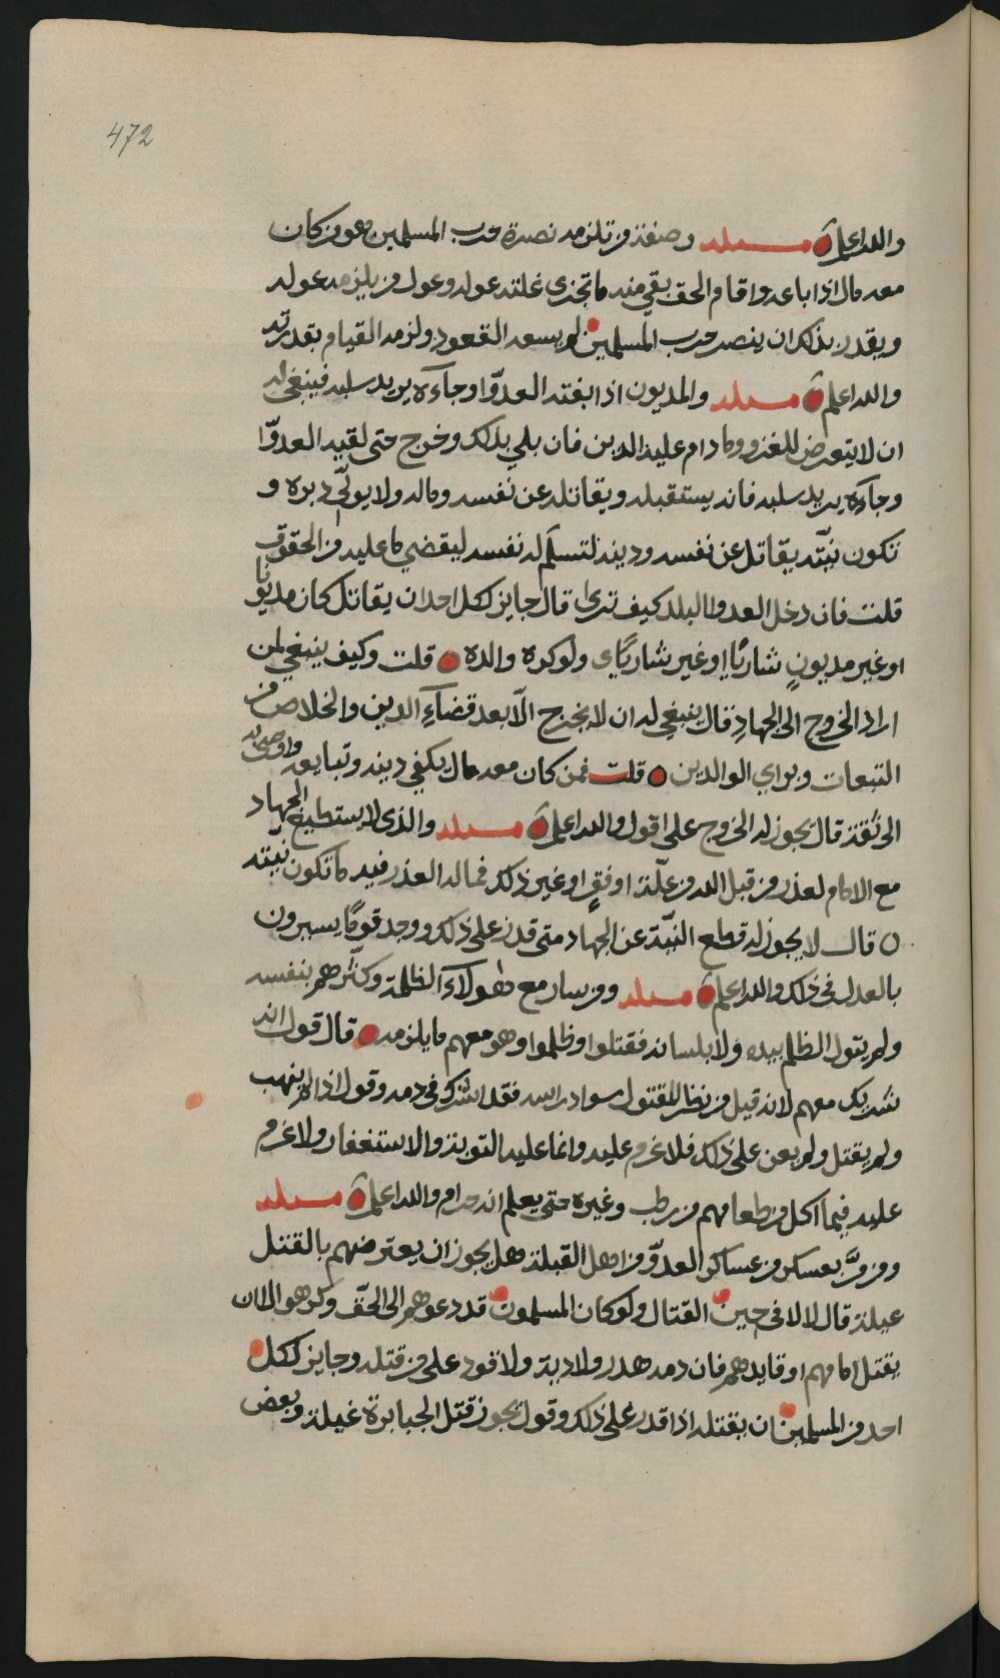 472
والله اعلم مسئلة وصفة من تلزمه نصرة حرب المسلمين هو من كان
معه مال اذا باعه واقام الحق بقي منه ما تجزى غلته عوله وعول من يلزمه عوله
ويقدر بذلك ان ينصر حرب المسلمين لم يسعه القعود ولزمه القيام بقدرته
والله اعلم مسئلة والمديون اذا بغته العدوّ او جآءه يريد سلبه فينبغي له
ان لا يتعرض للغزو وما دام عليه الدين فان بلي بذلك وخرج حتى لقيه العدوّا
وجآءه يريد سلبه فانه يستقبله ويقاتله عن نفسه وماله ولا يولّي دبره و
تكون نيّته يقاتل عن نفسه ودينه لتسلم له نفسه ليقضي ما عليه من الحقوق
قلت فان دخل العدوا البلد كيف ترى قال جايز لكل احد ان يقاتل كان مديونا
او غير مديونٍ شاريًا او غير شاري ولو كره والده قلت وكيف ينبغي لمن
اراد الخروج الى الجهادِ قال ينبغي له ان لا يخرج الّا بعد قضآءِ الدين والخلاص من
التبعات وبراي الوالدين قلت فمن كان معه مال يكفي دينه وتبايعه واوصى به
الى ثقة قال يجوز له الخروج على اقول والله اعلم مسئلة والذى لا يستطيع الجهاد
مع الامام لعذر من قبل الله من علّة او فقٍ او غير ذلك فما له العذر فيه ما تكون نيّته
قال لا يجوز له قطع النيّة عن الجهاد متى قدر على ذلك ووجد قومًا يسيرون
بالعدل في ذلك والله اعلم مسئلة ومن سار مع هولآء الظلمة وكثرهم بنفسه
ولم يتول الظلم بيده ولا بلسانه فقتلوا وظلموا وهو معهم ما يلزمه قال قول انه
شريك معهم لانه قيل من نظر للمقتول سواد راسه فقد اشترك في دمه وقول اذا لم ينهب
ولم يقتل ولم يعن على ذلك فلا غرم عليه وانما عليه التوبة والاستغفار ولا غرم
عليه فيما اكل من طعامهم من رطب وغيره حتى يعلم انه حرام والله اعلم مسئلة
ومن مرّ بعسكر من عساكر العدوّ من اهل القبلة هل يجوز ان يعترضهم بالقتل
غيلة قال لا الا في حين القتال ولو كان المسلمون قد دعوهم الى الحقّ وكرهوا الا ان
يقتل امامهم او قايدهم فان دمه هدر ولا دية ولا قود على من قتله وجايز لكل
احد من المسلمين ان يقتله اذا قدر على ذلك وقول يجوز قتل الجبابرة غيلة وبعض